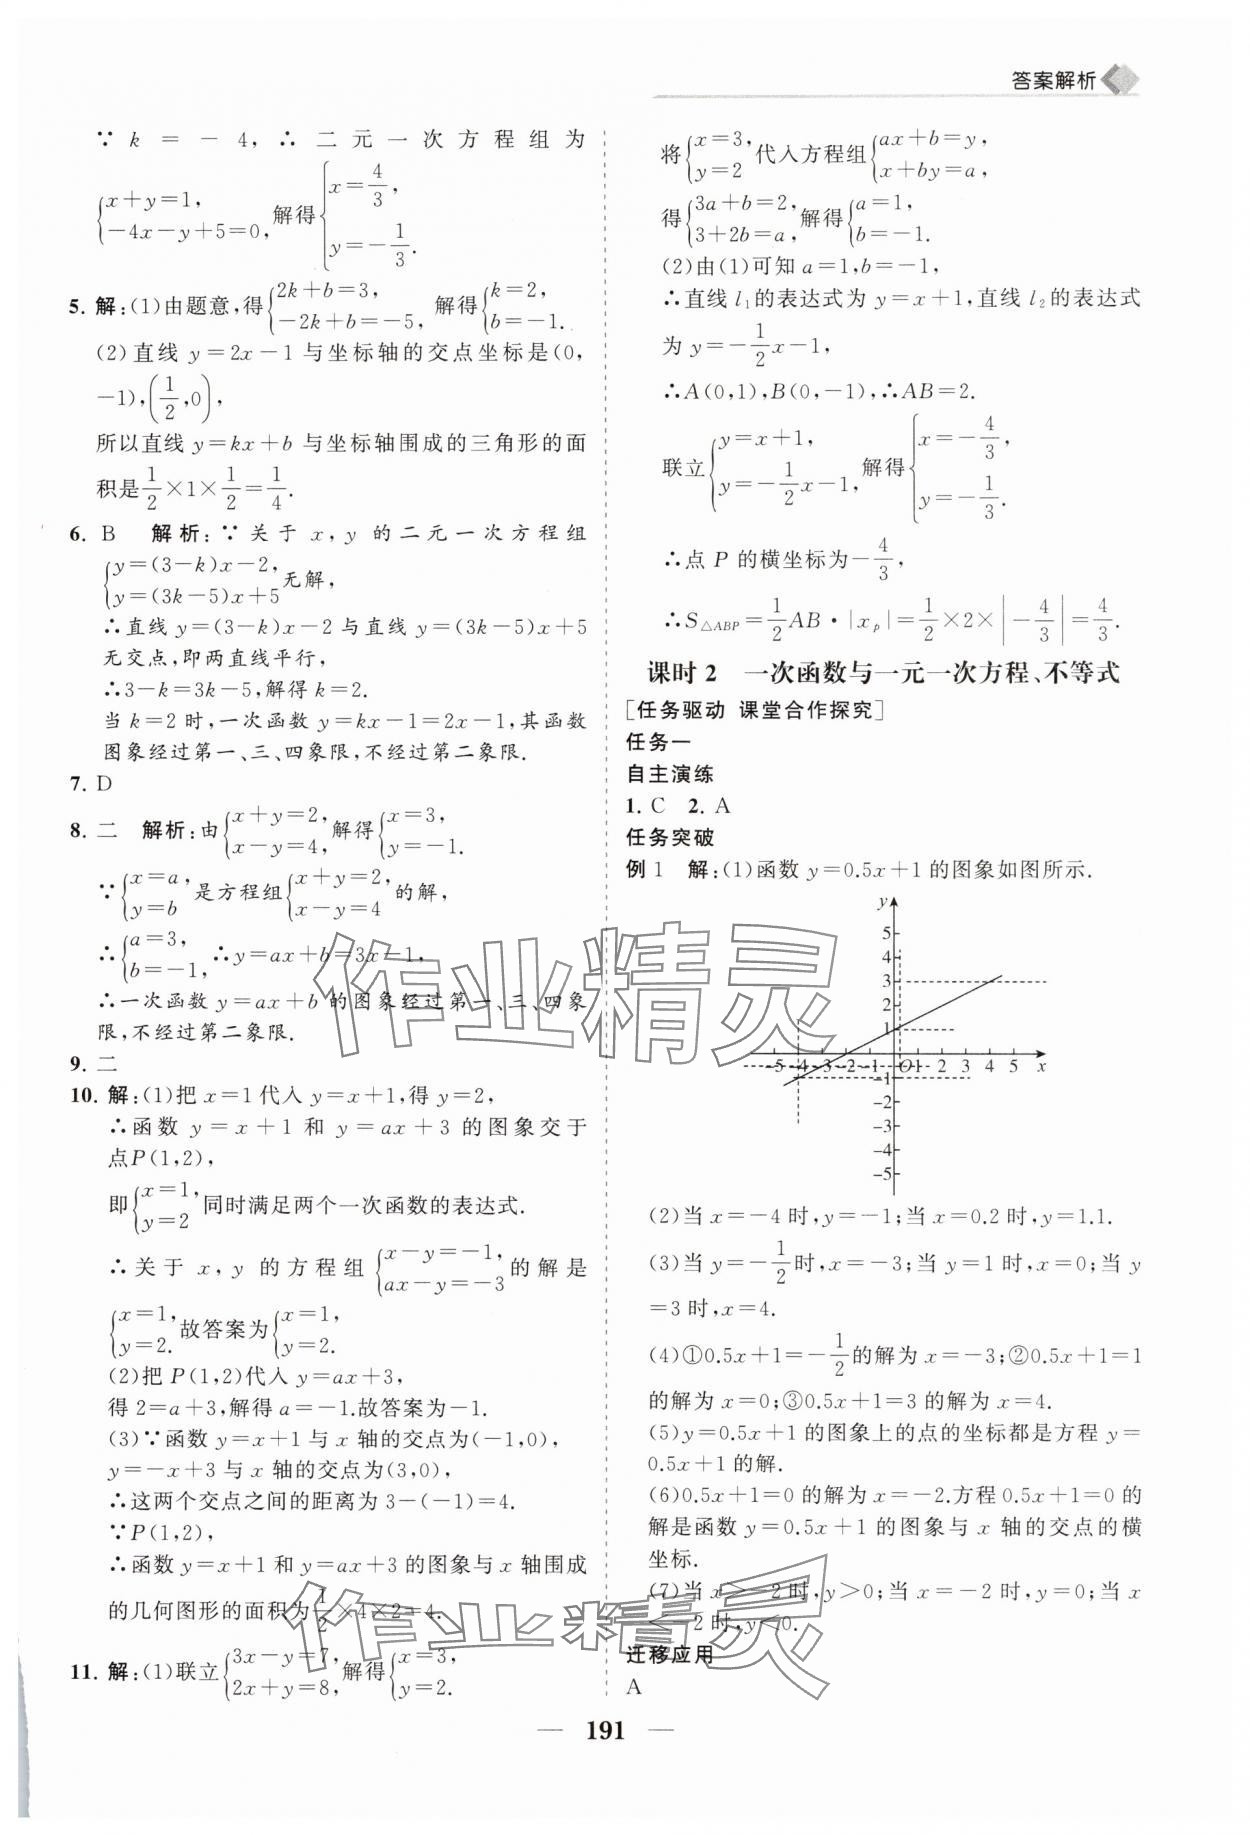 答案解析
∵ k = －4, ∴ 二元一次方程组为
{x＋y＝1, －4x－y＋5＝0, 解得{x＝4/3, y＝－1/3.
5. 解:(1)由题意,得{2k＋b＝3, －2k＋b＝－5, 解得{k＝2, b＝－1.
(2)直线 y＝2x－1 与坐标轴的交点坐标是(0,
－1),(1/2,0),
所以直线 y＝kx＋b 与坐标轴围成的三角形的面
积是1/2×1×1/2＝1/4.
6. B 解析:∵关于 x,y 的二元一次方程组
{y＝(3－k)x－2, y＝(3k－5)x＋5 无解,
∴直线 y＝(3－k)x－2 与直线 y＝(3k－5)x＋5
无交点,即两直线平行,
∴3－k＝3k－5,解得 k＝2.
当 k＝2 时,一次函数 y＝kx－1＝2x－1,其函数
图象经过第一、三、四象限,不经过第二象限.
7. D
8. 二 解析:由{x＋y＝2, x－y＝4, 解得{x＝3, y＝－1.
∵{x＝a, y＝b 是方程组{x＋y＝2, x－y＝4 的解,
∴{a＝3, b＝－1, ∴y＝ax＋b＝3x－1,
∴一次函数 y＝ax＋b 的图象经过第一、三、四象
限,不经过第二象限.
9. 二
10. 解:(1)把 x＝1 代入 y＝x＋1,得 y＝2,
∴函数 y＝x＋1 和 y＝ax＋3 的图象交于
点P(1,2),
即{x＝1, y＝2 同时满足两个一次函数的表达式.
∴关于 x,y 的方程组{x－y＝－1, ax－y＝－3 的解是
{x＝1, y＝2. 故答案为{x＝1, y＝2.
(2)把 P(1,2)代入 y＝ax＋3,
得 2＝a＋3,解得 a＝－1.故答案为－1.
(3)∵函数 y＝x＋1 与 x 轴的交点为(－1,0),
y＝－x＋3 与 x 轴的交点为(3,0),
∴这两个交点之间的距离为 3－(－1)＝4.
∵P(1,2),
∴函数 y＝x＋1 和 y＝ax＋3 的图象与 x 轴围成
的几何图形的面积为1/2×4×2＝4.
11. 解:(1)联立{3x－y＝7, 2x＋y＝8, 解得{x＝3, y＝2.
将{x＝3, y＝2 代入方程组{ax＋b＝y, x＋by＝a,
得{3a＋b＝2, 3＋2b＝a, 解得{a＝1, b＝－1.
(2)由(1)可知 a＝1,b＝－1,
∴直线 l₁的表达式为 y＝x＋1,直线 l₂的表达式
为 y＝－1/2x－1,
∴A(0,1),B(0,－1),∴AB＝2.
联立{y＝x＋1, y＝－1/2x－1, 解得{x＝－4/3, y＝－1/3.
∴点 P 的横坐标为－4/3,
∴S△ABP＝1/2AB·|xp|＝1/2×2×|－4/3|＝4/3.
课时 2 一次函数与一元一次方程、不等式
[任务驱动 课堂合作探究]
任务一
自主演练
1. C 2. A
任务突破
例 1 解:(1)函数 y＝0.5x＋1 的图象如图所示.
y
5
4
3
2
1
－5－4－3－2－1 O 1 2 3 4 5 x
－1
－2
－3
－4
－5
(2)当 x＝－4 时,y＝－1;当 x＝0.2 时,y＝1.1.
(3)当 y＝－1/2时,x＝－3;当 y＝1 时,x＝0;当 y
＝3 时,x＝4.
(4)①0.5x＋1＝－1/2的解为 x＝－3;②0.5x＋1＝1
的解为 x＝0;③0.5x＋1＝3 的解为 x＝4.
(5)y＝0.5x＋1 的图象上的点的坐标都是方程 y＝
0.5x＋1 的解.
(6)0.5x＋1＝0 的解为 x＝－2.方程 0.5x＋1＝0 的
解是函数 y＝0.5x＋1 的图象与 x 轴的交点的横
坐标.
(7)当 x＞－2 时,y＞0;当 x＝－2 时,y＝0;当 x
＜－2 时,y＜0.
迁移应用
A
作业精灵
作业精灵
— 191 —